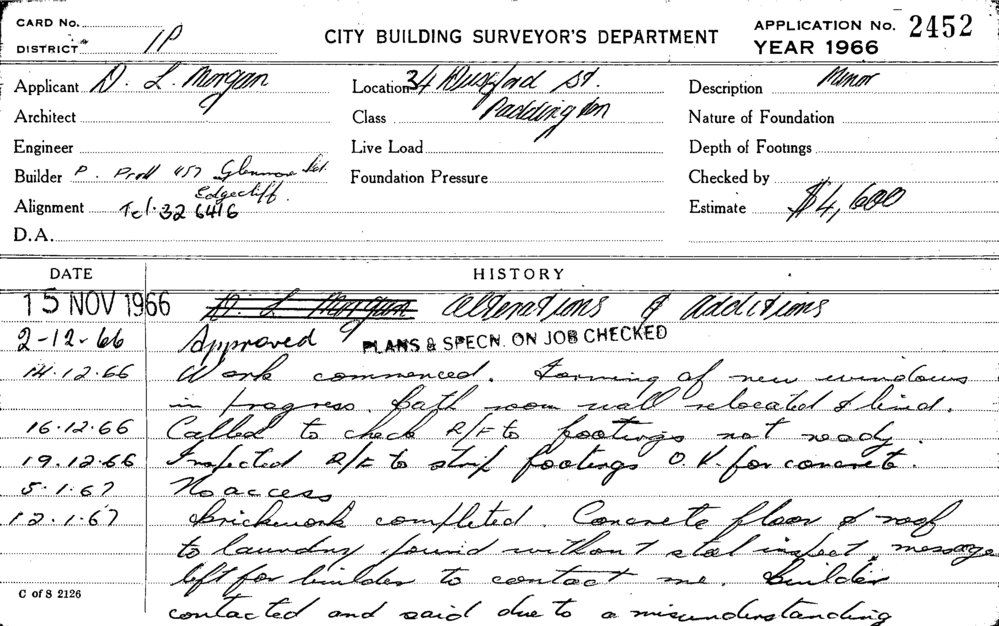 CARD No.
DISTRICT 1P
CITY BUILDING SURVEYOR'S DEPARTMENT
APPLICATION No. 2452
YEAR 1966
Applicant D. L. Morgan
Location 34 St.
Description Minor
Architect
Class Paddington
Nature of Foundation
Engineer
Live Load
Depth of Footings
Builder P. 457 Glenmore Rd.
Edgecliff.
Foundation Pressure
Checked by
Alignment Tel. 32 6416
Estimate $4,600
D.A.
DATE HISTORY
15 NOV 1966 D. L. Morgan Alterations & additions
2-12-66 Approved PLANS & SPECN. ON JOB CHECKED
14.12.66 Work commenced. Forming of new windows
in progress. Bath room wall relocated &
16.12.66 Called to check R/F to footings not ready.
19.12.66 Inspected R/F to strip footings O.K. for concrete.
5.1.67 No access
12.1.67 Brickwork completed. Concrete floor & roof
to laundry poured without steel inspect. message
left for builder to contact me. Builder
C of S 2126
contacted and said due to a misunderstanding